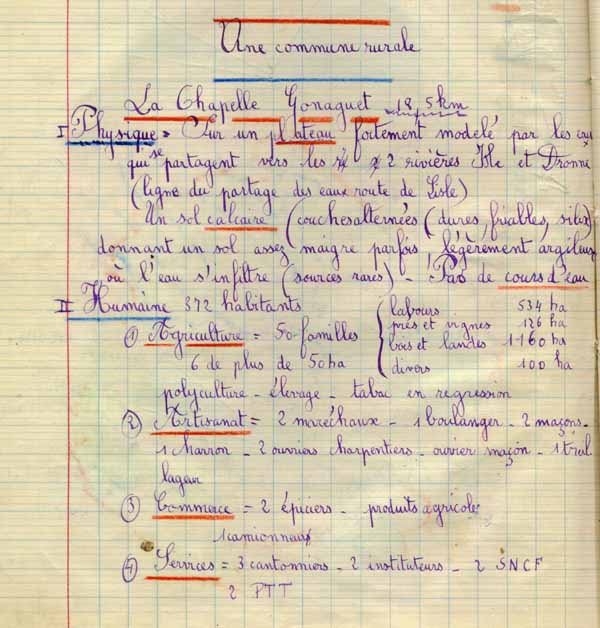 Une commune rurale
La Chapelle Gonaguet 18,5km
I Physique = Sur un plateau fortement modelé par les eaux
qui se partagent vers les 2 rivières Isle et Dronne
(ligne du partage des eaux route de Lisle)
Un sol calcaire (couches alternées (dures, friables, silex)
donnant un sol assez maigre parfois légèrement argileux
où l'eau s'infiltre (sources rares) - Pas de cours d'eau
II Humaine 372 habitants
① Agriculture = 50 familles
6 de plus de 50ha
labours 534 ha
prés et vignes 126 ha
bois et landes 1160 ha
divers 100 ha
polyculture - élevage - tabac en regression
② Artisanat = 2 maréchaux - 1 boulanger - 2 maçons -
1 charron - 2 ouvriers charpentiers - ouvrier maçon - 1 treil
lageur
③ Commerce = 2 épiciers - produits agricole
1 camionneur
④ Services = 3 cantonniers - 2 instituteurs - 2 SNCF
2 PTT